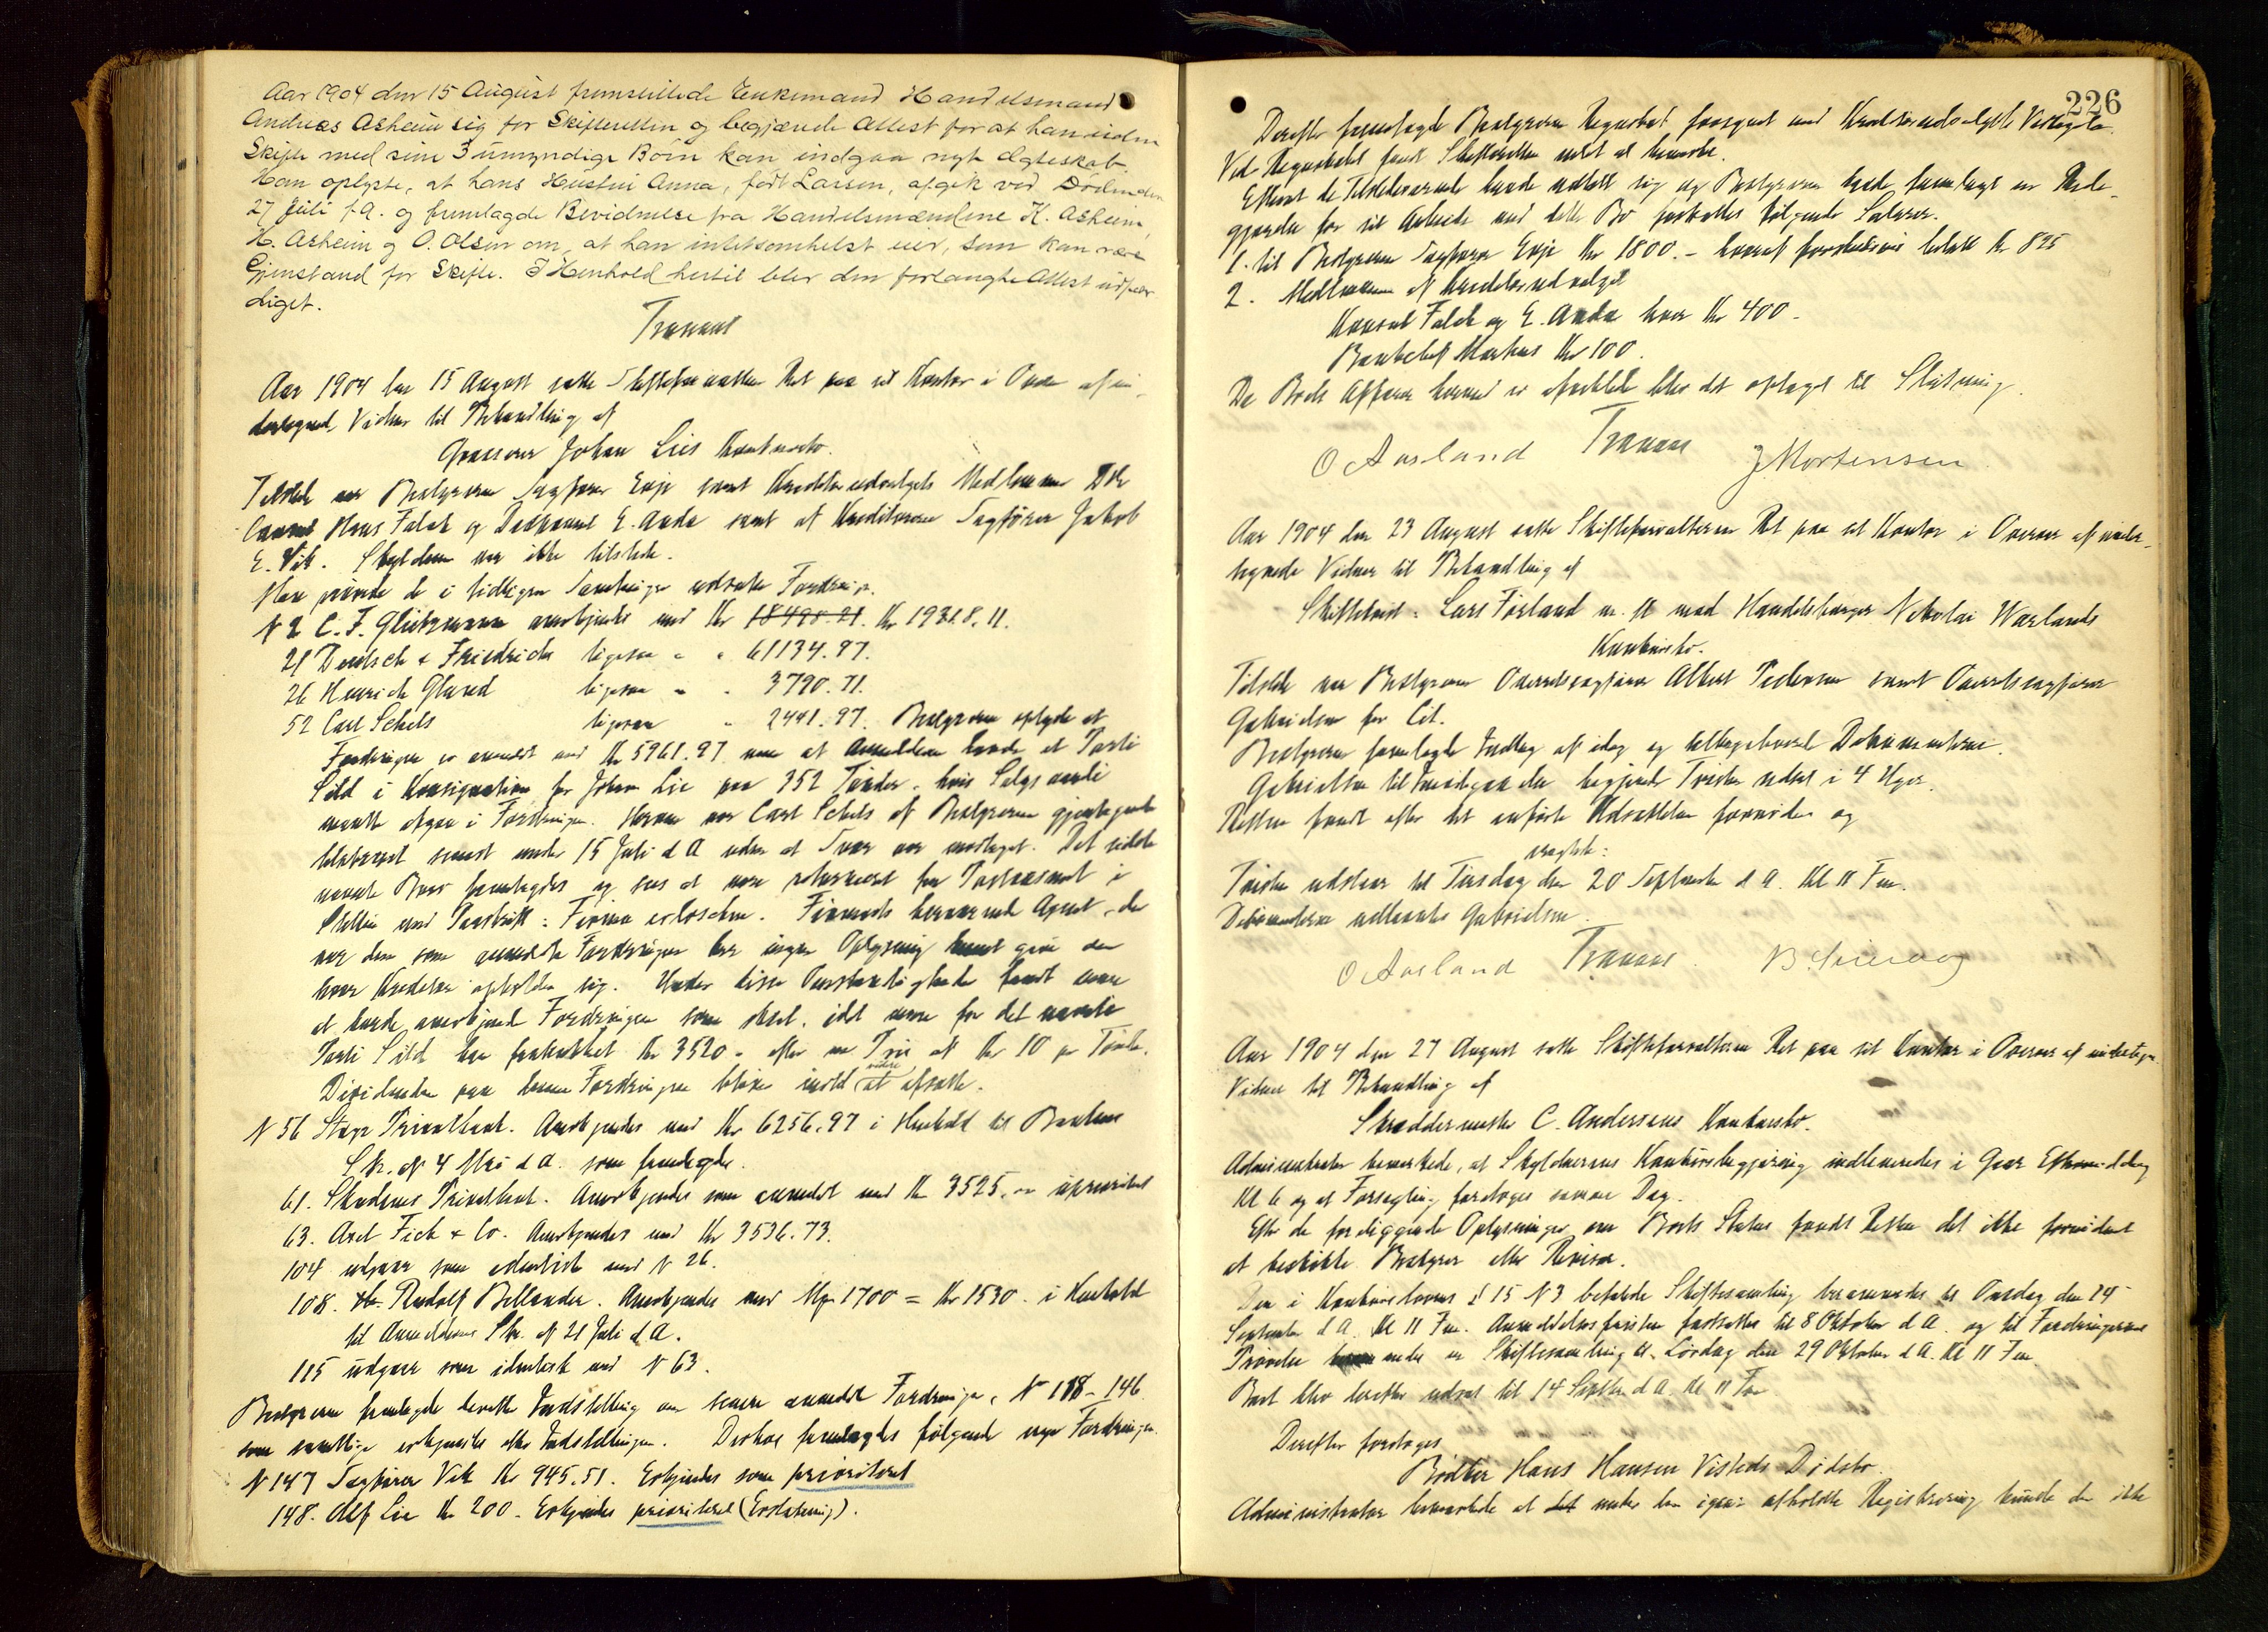 Aar 1904 den 15 August fremstillede Enkemand Handelsmand
Andreas Asheim sig for Skifteretten og begjærede Attest for at han uden
Skifte med sine 3 umyndige Børn kan indgaa nyt Ægteskab.
Han oplyste, at hans Hustru Anna, født Larsen, afgik ved Døden den
27 Juli f.A. og fremlagde Bevidnelse fra Handelsmændene K. Asheim,
H. Asheim og O. Olsen om, at han intetsomhelst eier, som kan være
Gjenstand for Skifte. I Henhold hertil blev den forlangte Attest udfær-
diget.
Tranaas
Aar 1904 den 15 August satte Skifteforvalteren Ret paa sit Kontor i Overv. af un-
dertegnede Vidner til Behandling af
Grosserer Johan Lies Konkursbo.
Tilstede var Bestyreren Sagfører Evje samt Kreditorudvalgets Medlemmer
Hans Falck og E. Anda samt af Kreditorerne Sagfører Jakob
E. Vik. Skyldneren var ikke tilstede.
Man prøvede de i tidligere Samlinger udsatte Fordringer.
N 2 C. F. Glietzmann anerkjendes med Kr 18498.21. Kr 19318.11.
21 Deutsch & Friedrich ligesaa " " 61134.97.
26 Henrich Glured ligesaa " " 3790.71.
52 Carl Schels ligesaa " 2441.97. Bestyreren oplyste at
Fordringen er anmeldt med Kr 5961.97 men at Anmelderen havde et Parti
Sild i Konsignation for Johan Lie paa 352 Tønder, hvis Salgsværdi
maatte afgaa i Fordringen. Herom var Carl Schels af Bestyreren gjentagende
tilskrevet senest under 15 Juli d A uden at Svar var modtaget. Det sidst
nævnte Brev fremlagdes og sees at være returneret fra Postvæsenet i
Stettin med Paaskrift: Firma erloschen. Firmaets herværende Agent, der
var den som anmeldte Fordringen har ingen Oplysning kunnet give om
hvor Kreditor opholder sig. Under disse Omstændigheder fandt man
at burde anerkjende Fordringen som sket, idet man for det nævnte
Parti Sild har fratrukket Kr 3520 - efter en Pris af Kr 10 pr Tønde.
Dividenden paa denne Fordringen bliver indtil videre at afsætte.
N 56 Stavgr Privatbank. Anerkjendes med Kr 6256.97 i Henhold til Bankens
Skr. af 4 Mai d A. som fremlagdes.
61. Skudenes Privatbank. Anerkjendes som anmeldt med Kr 3525.00 uprioritert
63. Axel Fick & Co. Anerkjendes med Kr 3536.73.
104 udgaar som identisk med N 26.
108. Rudolf Bellander. Anerkjendes med Mk 1700 = Kr 1530. i Henhold
til Anmelderens Skr. af 21 Juli d A.
115 udgaar som identisk med N 63.
Bestyreren fremlagde derefter Indstilling om senere anmeldte Fordringer, No 118-146
som samtlige erkjendtes efter Indstillingen. Derhos fremlagdes følgende nye Fordringer
N 147 Sagfører Vik Kr 945.51. Erkjendes som prioriteret
148. Alf Lie Kr 200. Erkjendes prioriteret (Erstatning).
226
Derefter fremlagde Bestyreren Regnskab forsynet med Kreditorudvalgets Vedtagelse.
Ved Regnskabet fandt Skifteretten intet at bemærke.
Efterat de Tilstedeværende havde udtalt sig og Bestyreren havde fremlagt en Rede-
gjørelse for sit Arbeide med dette Bo fastsattes følgende Salærer.
1. til Bestyreren Sagfører Evje Kr 1800.- hvoraf forskudsvis betalt Kr 825
2. Medlemmer af Kreditorudvalget
Konsul Falck og E. Anda hver Kr 400 -
Bankchef Markus Kr 100.
Da Boets Affærer hermed er afviklede blev det optaget til Slutning.
O Aarsland Tranaas J Mortensen
Aar 1904 den 23 August satte Skifteforvalteren Ret paa sit Kontor i Overvær af under-
tegnede Vidner til Behandling af
Skiftetvist: Lars Førland m. fl. mod Handelsborger Nikolai Warlands
Konkursbo.
Tilstede var Bestyreren Overretssagfører Albert Pedersen samt Overretssagfører
Gabrielsen for Cit.
Bestyreren fremlagde Indlæg af idag og tilbageleverede Dokumenterne.
Gabrielsen til Imødegaaelse begjærede Tvisten udsat i 4 Uger.
Retten fandt efter det anførte Udsættelse fornøden og
eragtede:
Tvisten udstaar til Tirsdag den 20 September d A. Kl 11 Fm.
Dokumenterne udlaantes Gabrielsen.
O Aarsland Tranaas.
Aar 1904 den 27 August satte Skifteforvalteren Ret paa sit Kontor i Overvær af undertegn.
Vidner til Behandling af
Skræddermester C. Andersens Konkursbo.
Administrator bemærkede, at Skyldnerens Konkursbegjæring indleveredes i Gaar Eftermiddag
Kl 6 og at Forsegling foretoges samme Dag.
Efter de foreliggende Oplysninger om Boets Status fandt Retten det ikke fornødent
at beskikke Bestyrer eller Revisor.
Den i Konkurslovens § 15 N 3 befalede Skiftesamling berammedes til Onsdag den 14
September d A. Kl 11 Fm. Anmeldelsesfristen fastsattes til 8 Oktober d A. og til Fordringernes
Prøvelse en Skiftesamling af Lørdag den 29 Oktober d A. Kl 11 Fm.
Boet blev derefter udsat til 14 Septbr d A. Kl 11 Fm
Derefter foretoges
Bødker Hans Hansen Visteds Dødsbo.
Administrator bemærkede at det under den igaar afholdte Registrering kunde der ikke